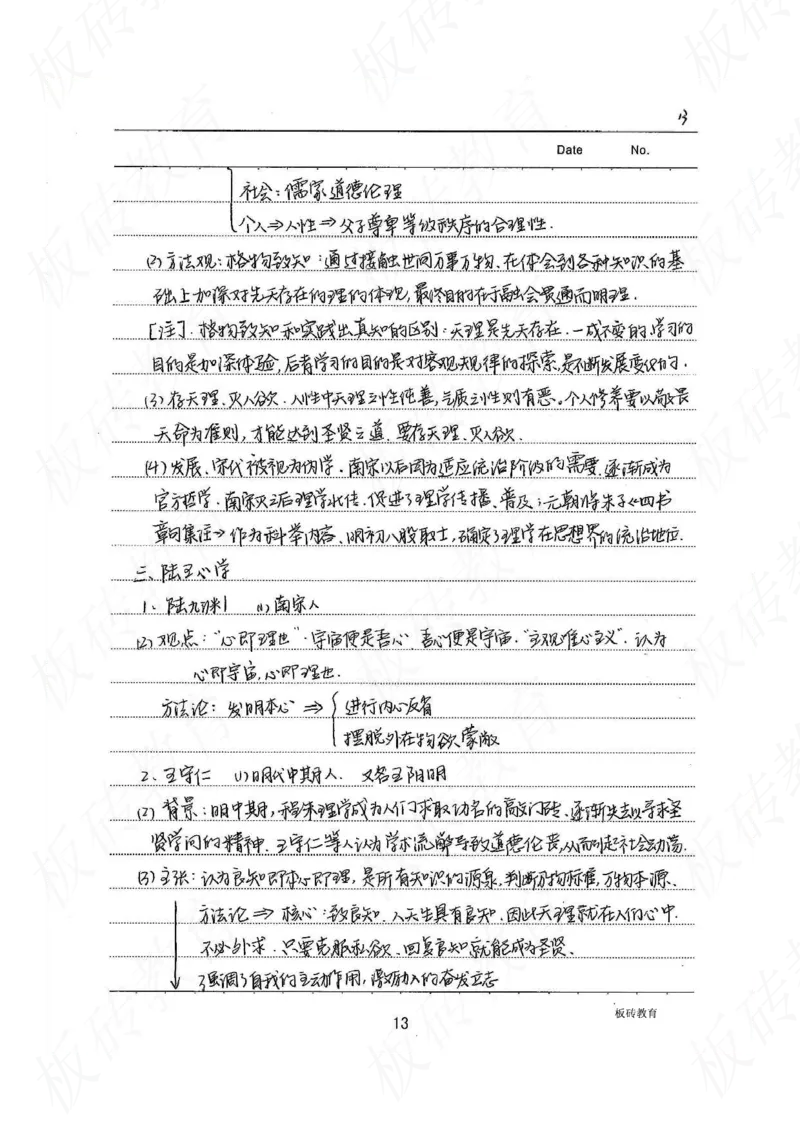 13
Date No.
社会：儒家道德伦理
个人⇒人性⇒父子尊卑等级秩序的合理性.
(2)方法观：格物致知：通过接触世间万事万物、在体会到各种知识的基
础上加深对先天存在的理的体现，最终目的在于融会贯通而明理.
[注]．格物致知和实践出真知的区别：天理是先天存在．一成不变的，学习的
目的是加深体验，后者学习的目的是对客观规律的探索，是不断发展变化的．
(3)存天理、灭人欲．人性中天理之性纯善，气质之性则有恶。个人修养要以敬畏
天命为准则，才能达到圣贤之道．要存天理、灭人欲．
(4)发展、宋代被视为伪学．南宋以后因为适应统治阶级的需要，逐渐成为
官方哲学．南宋灭亡后理学北传．促进了理学传播、普及；元朝将朱子《四书
章句集注》作为科举内容、明初八股取士，确定了理学在思想界的统治地位.
三、陆王心学
1、陆九渊 (1)南宋人
(2)观点："心即理也"．宇宙便是吾心．吾心便是宇宙．"主观唯心主义"．认为
心即宇宙，心即理也．
方法论：发明本心 ⇒ 进行内心反省
摆脱外在物欲蒙敝
2、王守仁 (1)明代中期人． 又名王阳明
(2)背景：明中期，程朱理学成为人们求取功名的敲门砖、逐渐失去以寻求圣
贤学问的精神．王守仁等人认为学术流弊导致道德伦丧，从而引起社会动荡.
(3)主张：认为良知即本心即理，是所有知识的源泉，判断万物标准，万物本源、
方法论⇒核心：致良知．人天生具有良知．因此天理就在人们心中．
不必外求．只要克服私欲、回复良知就能成为圣贤、
强调了自我的主动作用，激励人的奋发立志
板砖教育
13